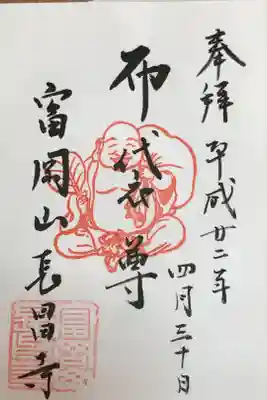 奉拝 平成廿二年
四月三十日
布代衣尊
富岡山長昌寺